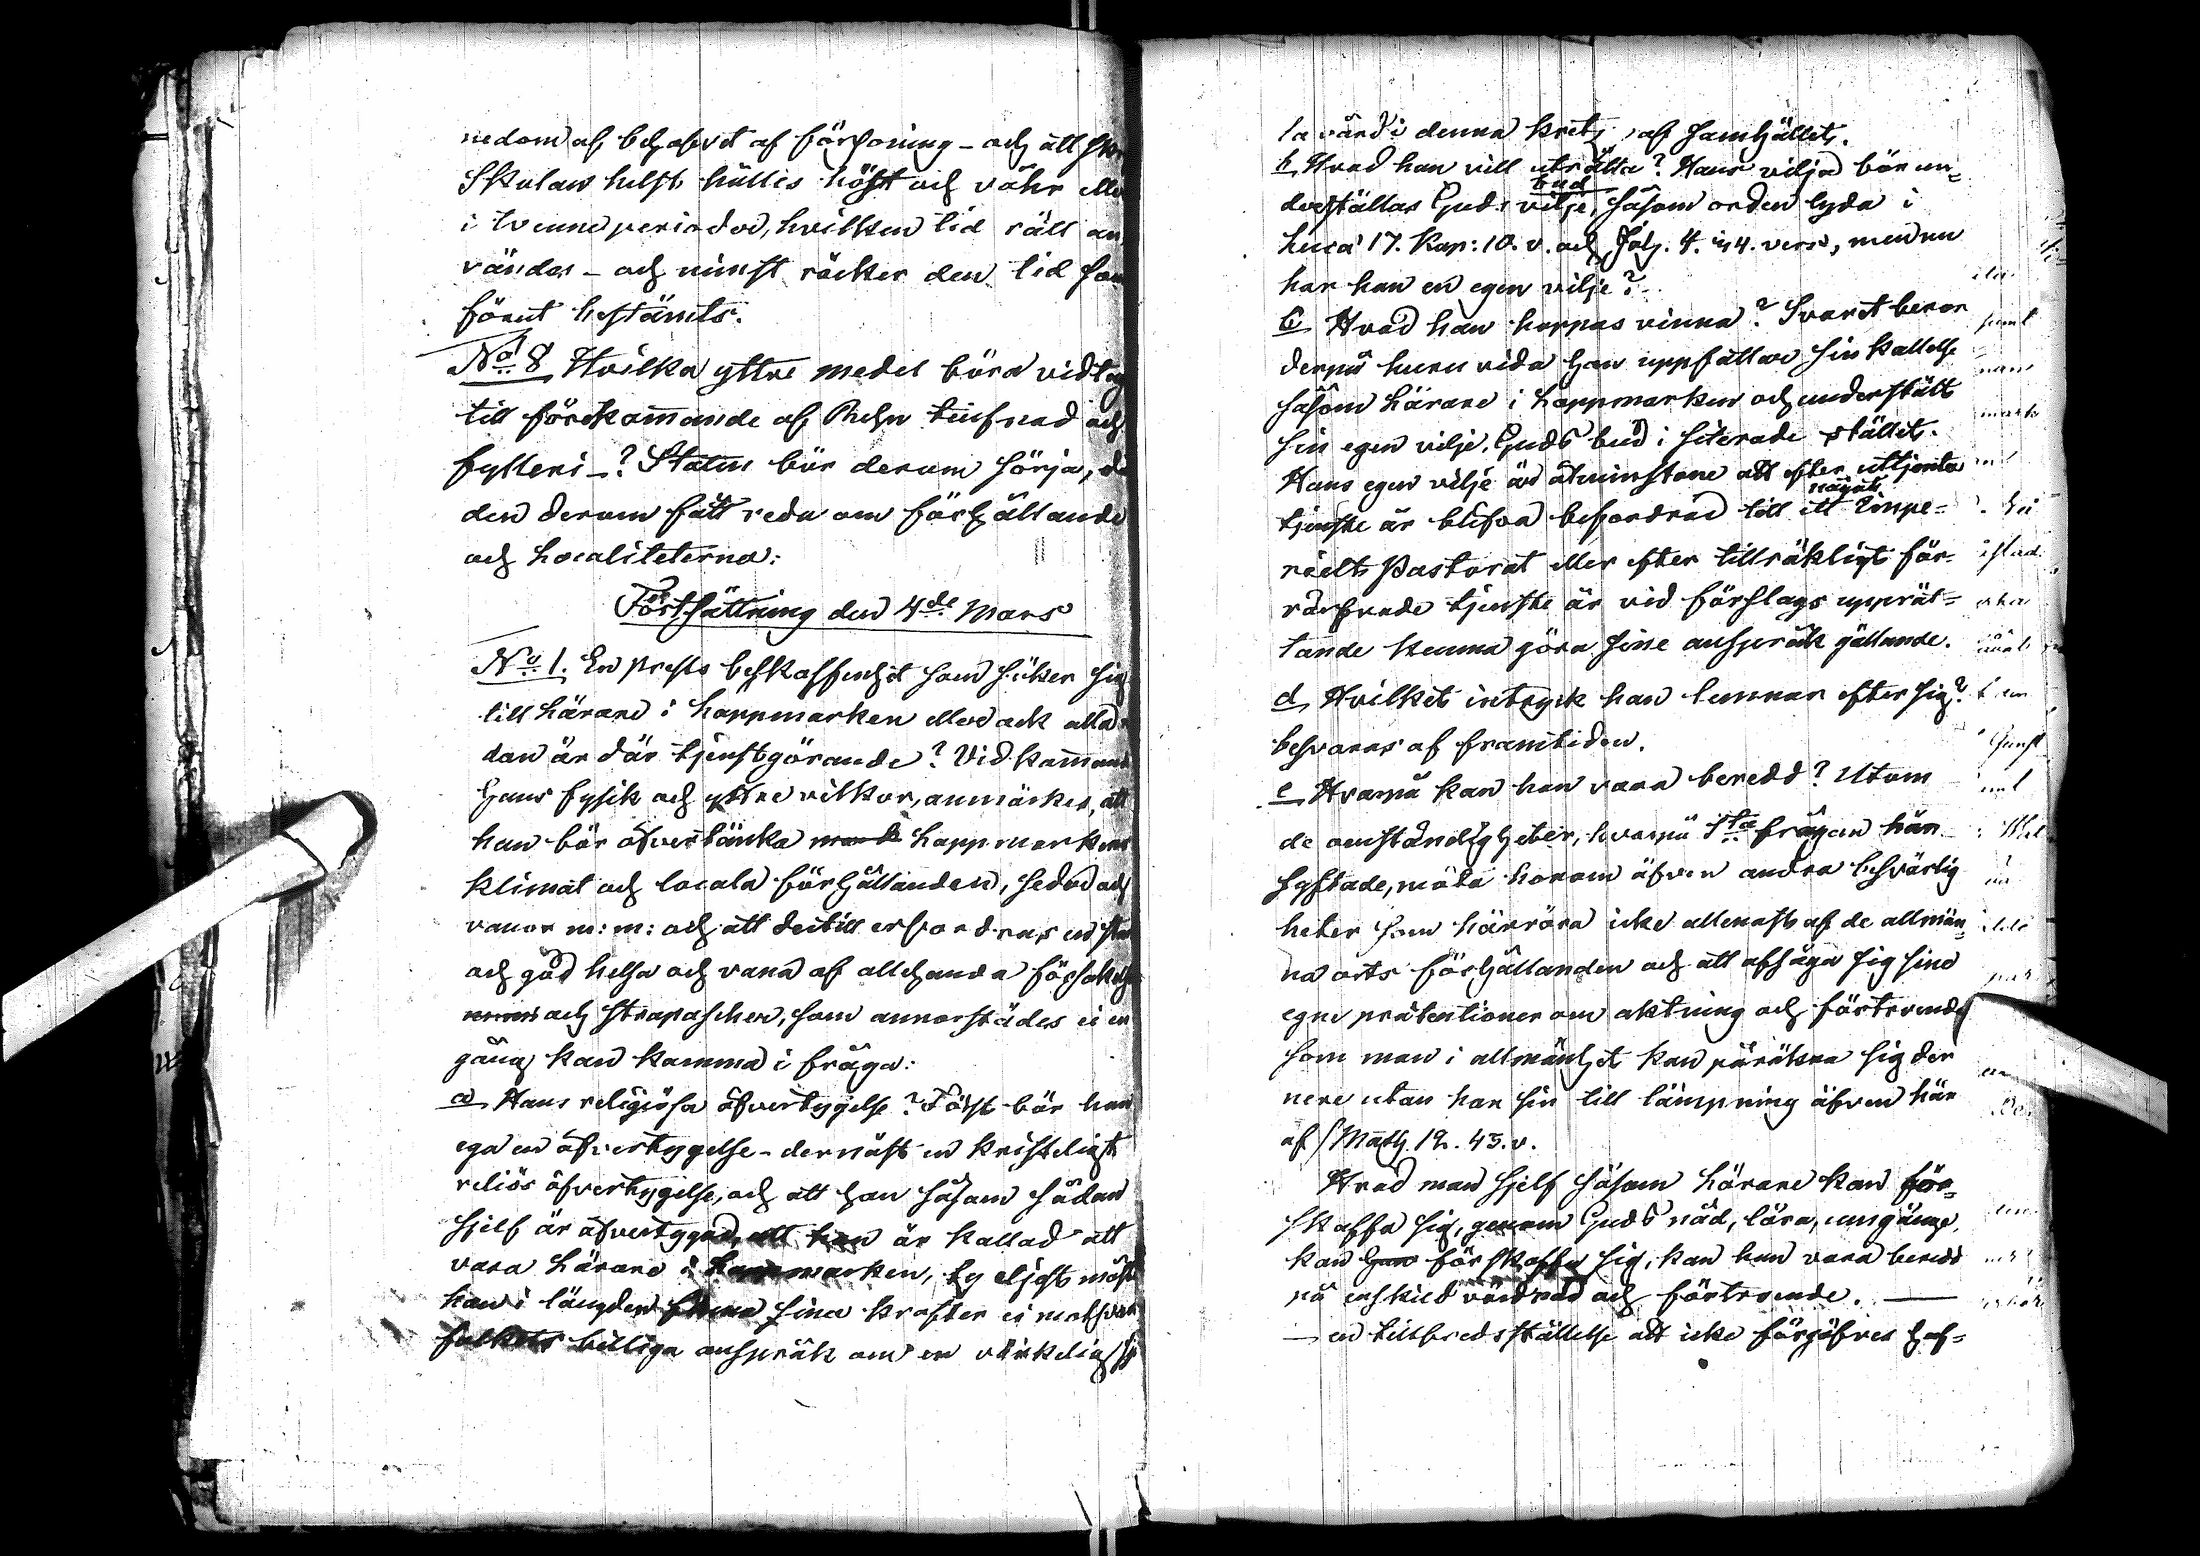 nedom af behofvet af försoning - och att
Skolan helst hålles höst och våhr eller
i tvenne perioder, hvilken tid rätt an
vändes - och minst räcker den tid som
förut bestämts.
No 8 Hvilka yttre medel böra vidtag
till förekom̄ande af Rehn tiufnad och
fylleri -? Staten bör derom sörja,
den derom fått reda om förhållande
och Localiteterna:
Fortsättning den 4de Mars
No 1. En prests beskaffenhet som söker sig
till Lärare i Lappmarken eller ock alla
dan är där tjenstgörande? Vidkom̄ande
hans fysik och yttre vilkor, anmärkes, att
han bör öfvertänka Lappmarkens
klimat och locala förhållanden, seder och
vanor m: m: och att dertill erfordras en
och god helsa och vana af allehanda
och strapascher, som annorstädes ei en
gång kan komma i fråga:
a) Hans religiösa öfvertygelse? Först bör han
ega en öfvertygelse - dernäst en kristeligt
reliös öfvertygelse, och att han såsom sådan
sjelf är öfvertygad, att han är kallad att
vara Lärare i Lappmarken, ty eljest måste
han i längden finna sina krafter ei motsvara
folkets billiga anspråk om en värkelig
la vård i denna krets af samhället.
b Hvad han vill uträtta? Hans vilja bör un-
bud
derställas Guds vilje, såsom orden lyda i
Luca 17. Kap: 10. v. och Joh. 4. 34. vers, men nu
har han en egen vilje?
C Hvad han hoppas vinna? Svaret beror
derpå huru vida han uppfattar sin kallelse
såsom Lärare i Lappmarken och underställt
sin egen vilje, Guds bud i siterade stället.
Hans egen vilje är åtminstone att efter uttjenta
något
tjenste år blifva befordrad till ett Impe-
rielt Pastorat eller efter tillräkligt för-
värfvade tjenste år vid förslags upprät-
tande kunna göra sine anspråk gällande.
d Hvilket intryck han lemnar efter sig?
besvaras af framtiden.
e Hvarpå kan han vara beredd? Utom
de omständigheter, hvarpå 1sta frågan hän
syftade, möta honom äfven andra besvärlig
heter som härröra icke allenast af de allmän-
na orts förhållanden och att afsäga sig sina
egne prätentioner om aktning och förtroende
som man i allmänhet kan påräkna sig der
nere utan har sin till lämpning äfven här
af Math. 12. 43. v.
Hvad man sjelf såsom Lärare kan för-
skaffa sig, genom Guds nåd, lära, umgänge,
kan han förskaffa sig, kan han vara beredd
på enskild vårdnad och förtroende. —
— en tillfredsställelse att icke förgäfves haf-